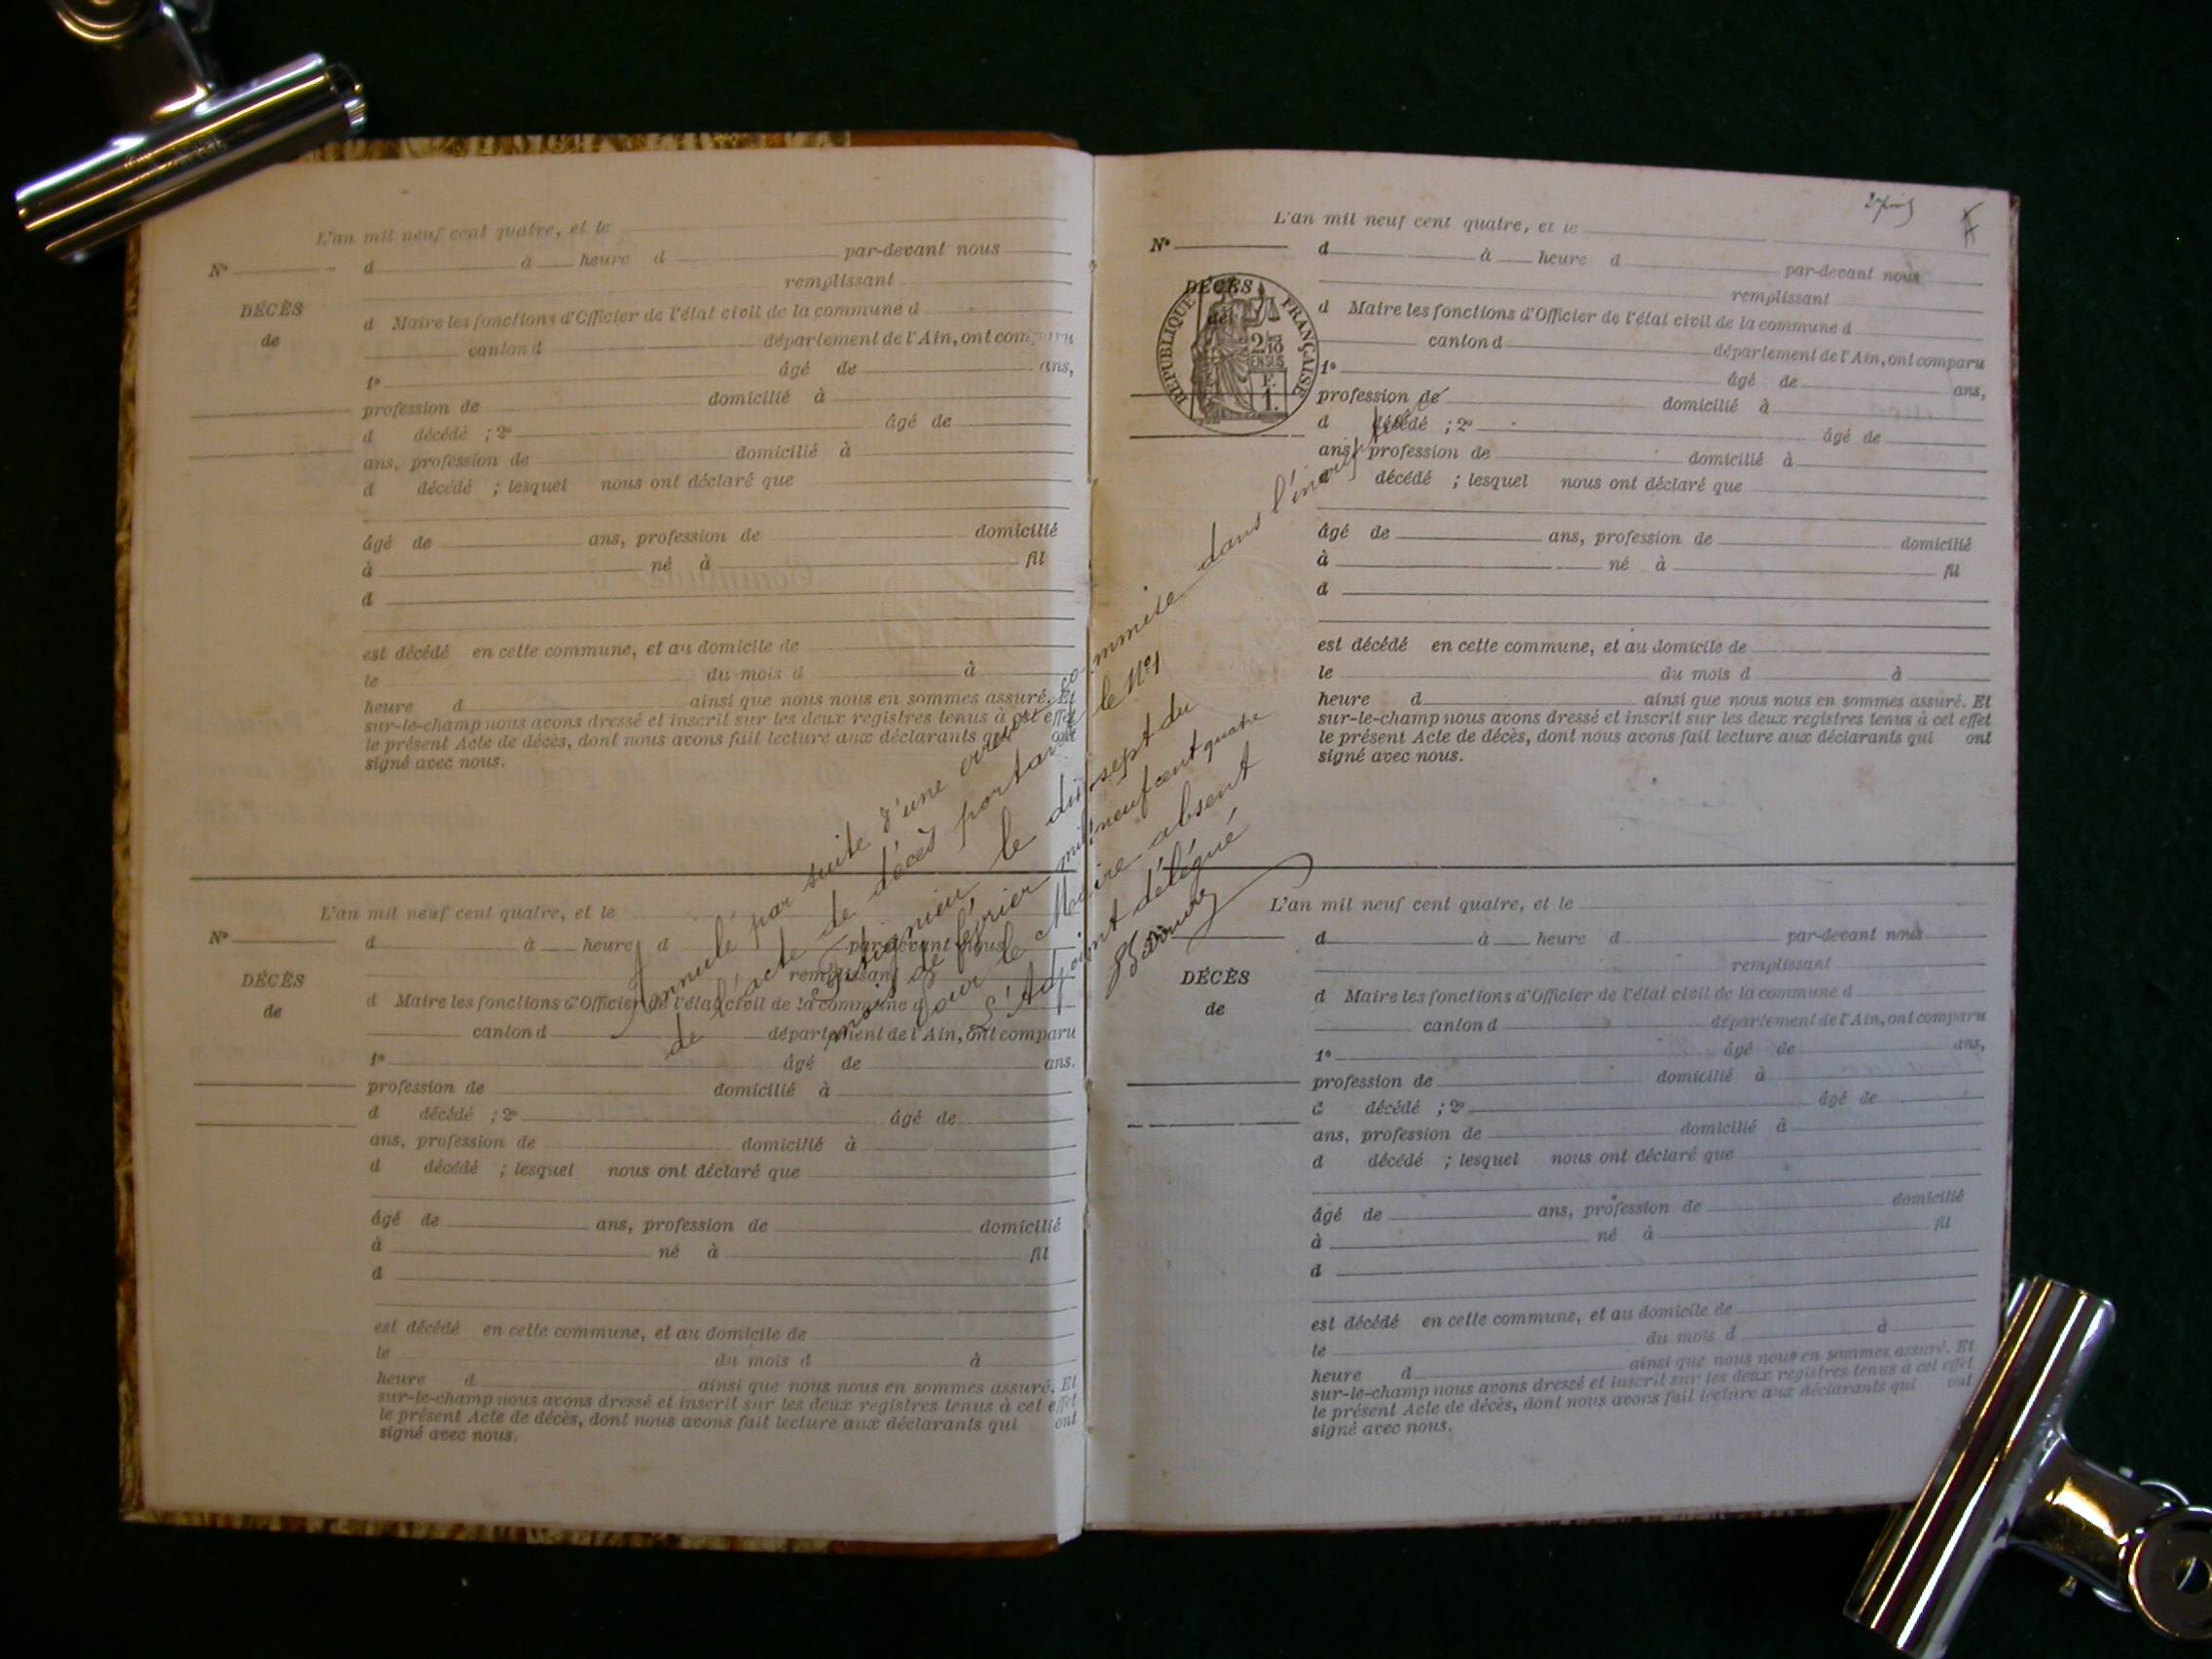 L'an mil neuf cent quatre, et le
N° d à heure d par-devant nous
remplissant
DÉCÈS
de
d Maire les fonctions d'Officier de l'état civil de la commune d
canton d département de l'Ain, ont comparu
1° âgé de ans,
profession de domicilié à
d décédé ; 2° âgé de
ans, profession de domicilié à
d décédé ; lesquel nous ont déclaré que
âgé de ans, profession de domicilié
à né à fil
d
est décédé en cette commune, et au domicile de
le du mois d à
heure d ainsi que nous nous en sommes assuré. Et
sur-le-champ nous avons dressé et inscrit sur les deux registres tenus à cet effet
le présent Acte de décès, dont nous avons fait lecture aux déclarants qui ont
signé avec nous.
L'an mil neuf cent quatre, et le
N° d à heure d par-devant nous
remplissant
DÉCÈS
de
d Maire les fonctions d'Officier de l'état civil de la commune d
canton d département de l'Ain, ont comparu
1° âgé de ans.
profession de domicilié à
d décédé ; 2° âgé de
ans, profession de domicilié à
d décédé ; lesquel nous ont déclaré que
âgé de ans, profession de domicilié
à né à fil
d
est décédé en cette commune, et au domicile de
le du mois d à
heure d ainsi que nous nous en sommes assuré. Et
sur-le-champ nous avons dressé et inscrit sur les deux registres tenus à cet effet
le présent Acte de décès, dont nous avons fait lecture aux déclarants qui ont
signé avec nous.
Annulé par suite d'une erreur commise dans l'inscription
de l'acte de décès portant le N° 1
le dix sept du
mois de février mil neuf cent quatre
Pour le Maire absent
L'Adjoint délégué
L'an mil neuf cent quatre, et le
N° d à heure d par-devant nous
remplissant
DÉCÈS
de
RÉPUBLIQUE FRANÇAISE
2/10
EN SUS
F.
1.
d Maire les fonctions d'Officier de l'état civil de la commune d
canton d département de l'Ain, ont comparu
1° âgé de ans,
profession de domicilié à
d décédé ; 2° âgé de
ans, profession de domicilié à
décédé ; lesquel nous ont déclaré que
âgé de ans, profession de domicilié
à né à fil
d
est décédé en cette commune, et au domicile de
le du mois d à
heure d ainsi que nous nous en sommes assuré. Et
sur-le-champ nous avons dressé et inscrit sur les deux registres tenus à cet effet
le présent Acte de décès, dont nous avons fait lecture aux déclarants qui ont
signé avec nous.
L'an mil neuf cent quatre, et le
d à heure d par-devant nous
remplissant
DÉCÈS
de
d Maire les fonctions d'Officier de l'état civil de la commune d
canton d département de l'Ain, ont comparu
1° âgé de ans,
profession de domicilié à
d décédé ; 2° âgé de
ans, profession de domicilié à
d décédé ; lesquel nous ont déclaré que
âgé de ans, profession de domicilié
à né à fil
d
est décédé en cette commune, et au domicile de
le du mois d à
heure d ainsi que nous nous en sommes assuré. Et
sur-le-champ nous avons dressé et inscrit sur les deux registres tenus à cet effet
le présent Acte de décès, dont nous avons fait lecture aux déclarants qui ont
signé avec nous.